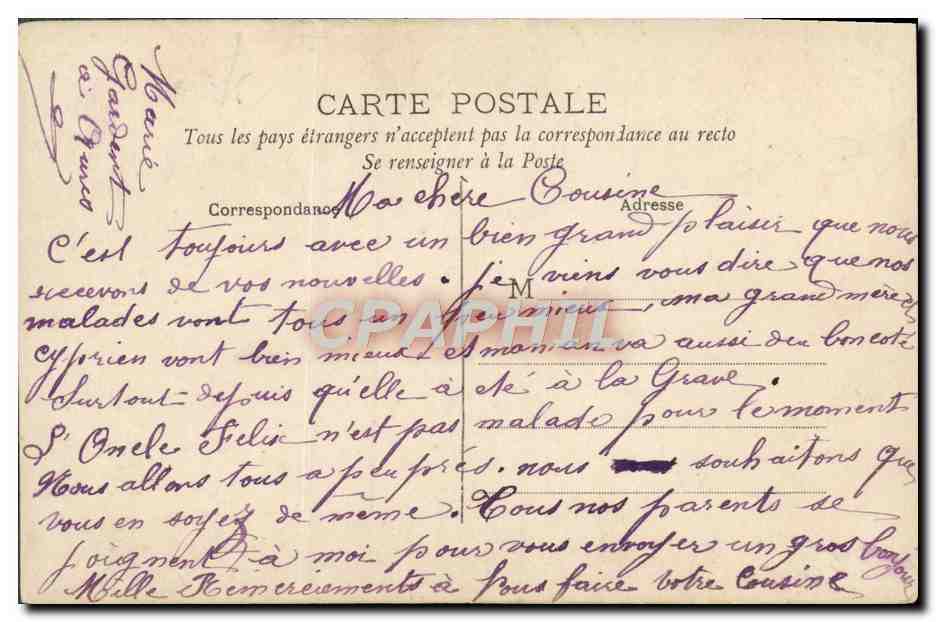 Marie
Gardent
à Ogures
CARTE POSTALE
Tous les pays étrangers n'acceptent pas la correspondance au recto
Se renseigner à la Poste
Correspondance
Adresse
M
CPAPHIL
Ma chère Cousine
C'est toujours avec un bien grand plaisir que nous
recevons de vos nouvelles. Je viens vous dire que nos
malades vont tous un peu mieux, ma grand mère et
Cyprien vont bien mieux et maman va aussi du bon coté
Surtout depuis qu'elle à été à la Grave.
L'Oncle Felix n'est pas malade pour le moment
Nous allons tous a peu prés. nous souhaitons que
vous en soyez de même. Tous nos parents se
joignent à moi pour vous envoyer un gros bonjour
Mille Remerciements à vous faire votre Cousine